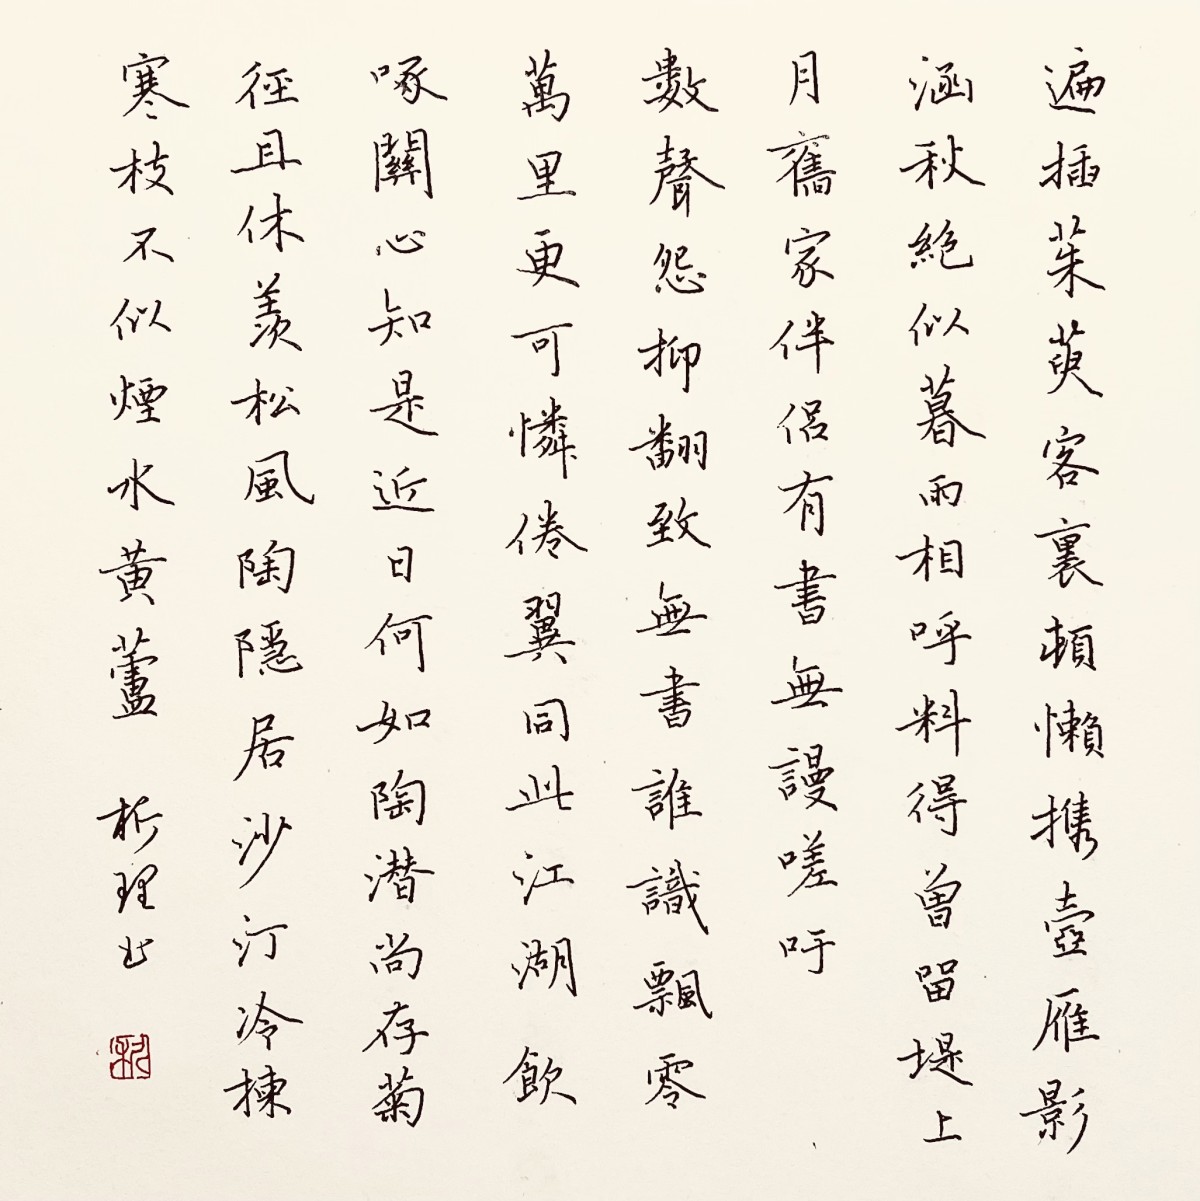 遍插茱萸客裏頓懶攜壺雁影
涵秋絕似暮雨相呼料得曾留堤上
月舊家伴侶有書無謾嗟吁
數聲怨抑翻致無書誰識飄零
萬里更可憐倦翼同此江湖飲
啄關心知是近日何如陶潛尚存菊
徑且休羨松風陶隱居沙汀冷揀
寒枝不似煙水黃蘆 析理书